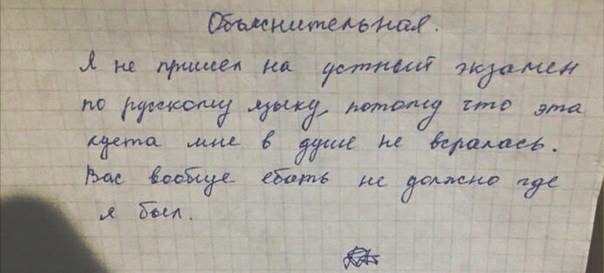 Объяснительная.
Я не пришел на устный экзамен
по русскому языку, потому что эта
хуета мне в душе не всралась.
Вас вообще ебать не должно где
я был.